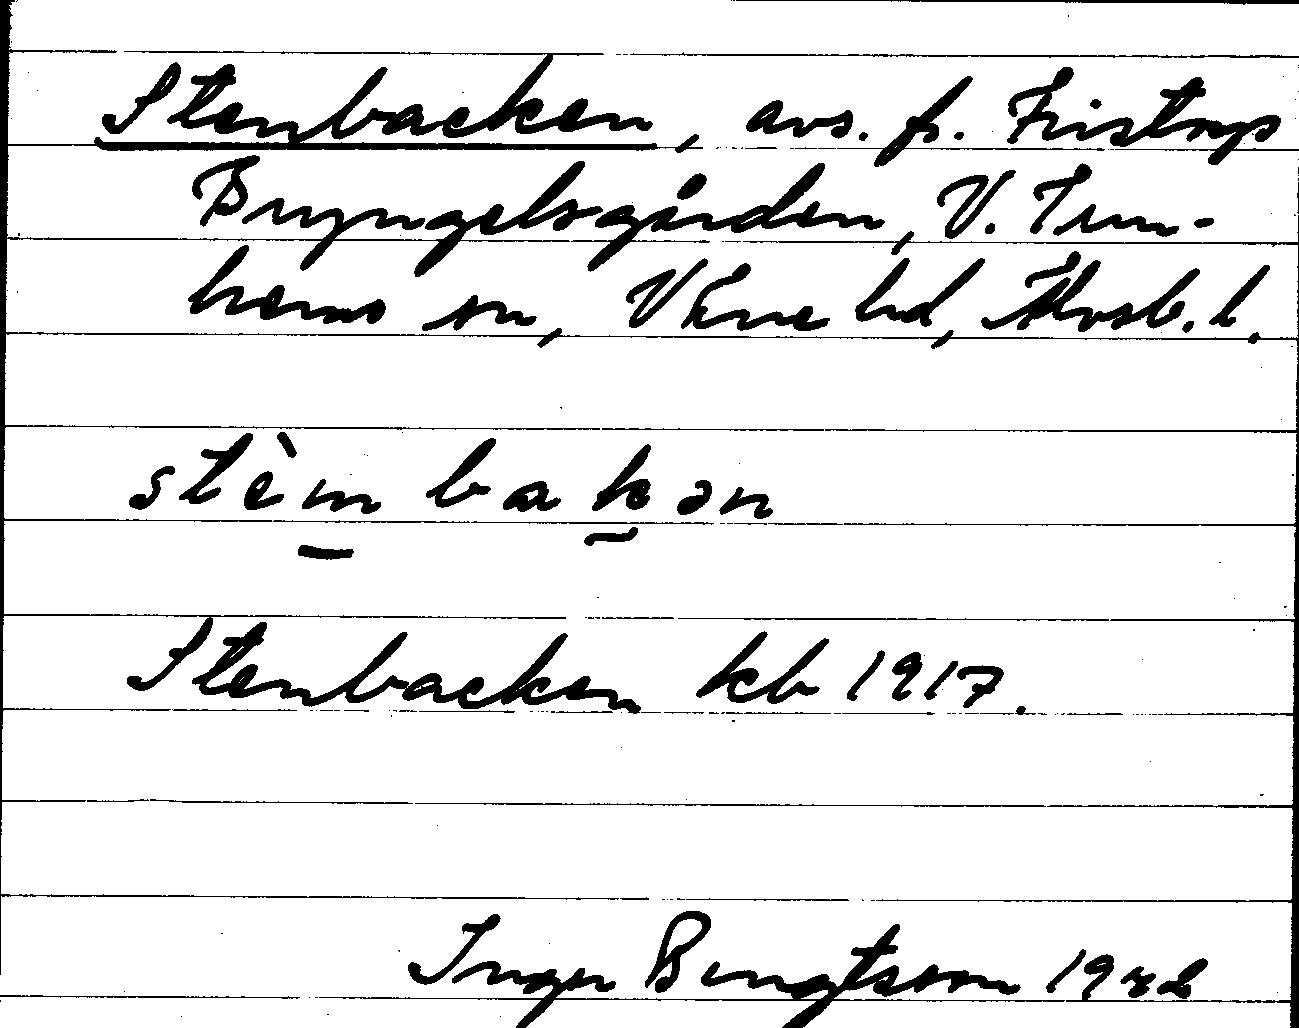 Stenbacken, avs. fr. Fristorp
Bryngelsgården, V. Tun-
hems sn, Väne hd, Älvsb. l.
stèm bakən
Stenbacken kb 1917.
Inger Bengtsson